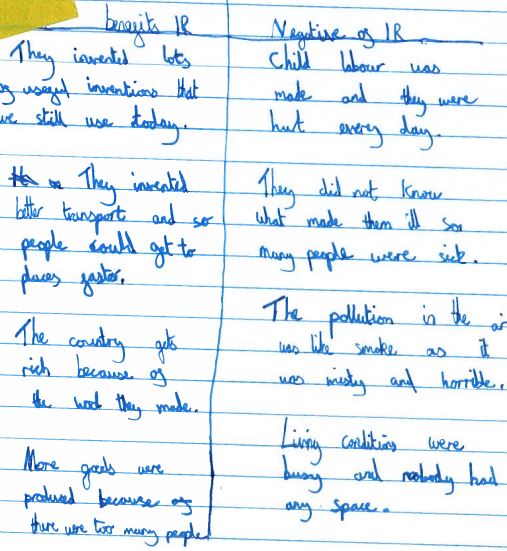 benefits IR
They invented lots
of useful inventions that
we still use today.
They invented
better transport and so
people could get to
places faster.
The country gets
rich because of
the wool they made.
More goods were
produced because of
there were too many people
Negitive of IR
Child labour was
made and they were
hurt every day.
They did not know
what made them ill so
many people were sick.
The pollution in the air
was like smoke as it
was misty and horrible.
Living conditions were
busy and nobody had
any space.